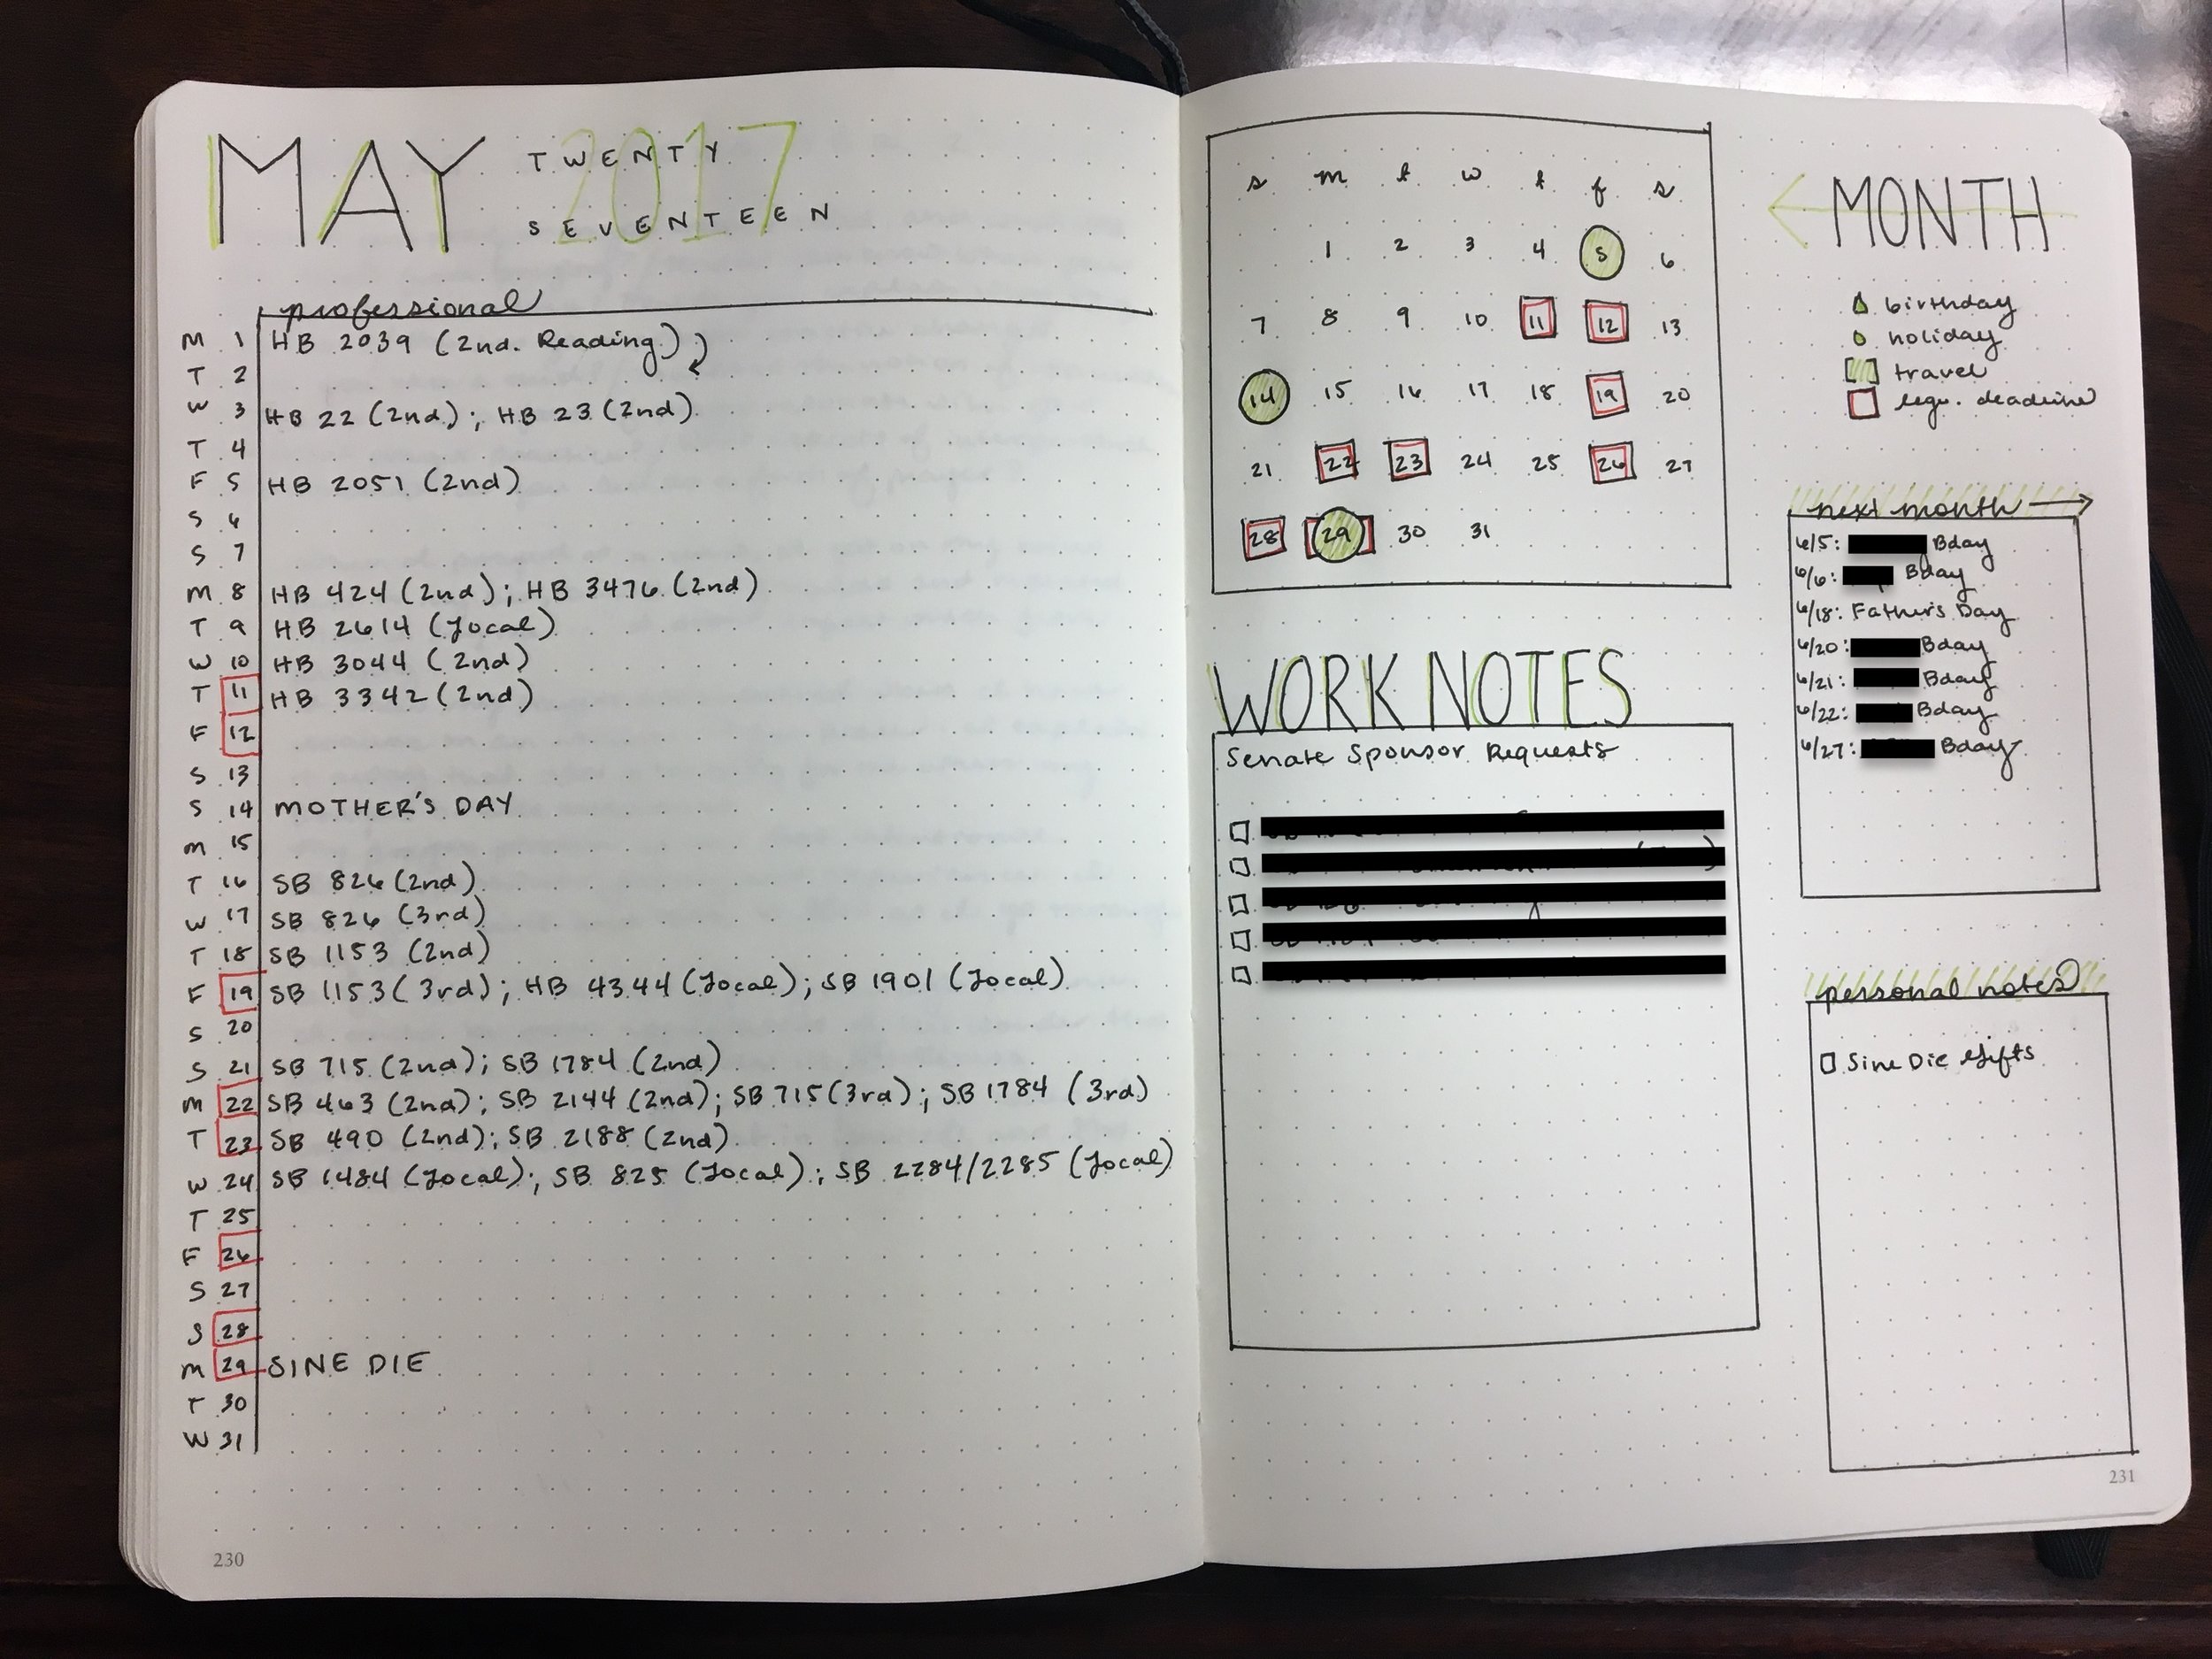 MAY TWENTY SEVENTEEN 2017
professional
M 1 HB 2039 (2nd. Reading)
T 2
W 3 HB 22 (2nd); HB 23 (2nd)
T 4
F 5 HB 2051 (2nd)
S 6
S 7
M 8 HB 424 (2nd); HB 3476 (2nd)
T 9 HB 2614 (Local)
W 10 HB 3044 (2nd)
T 11 HB 3342 (2nd)
F 12
S 13
S 14 MOTHER'S DAY
M 15
T 16 SB 826 (2nd)
W 17 SB 826 (3rd)
T 18 SB 1153 (2nd)
F 19 SB 1153 (3rd); HB 4344 (Local); SB 1901 (Local)
S 20
S 21 SB 715 (2nd); SB 1784 (2nd)
M 22 SB 463 (2nd); SB 2144 (2nd); SB 715 (3rd); SB 1784 (3rd)
T 23 SB 490 (2nd); SB 2188 (2nd)
W 24 SB 1484 (Local); SB 825 (Local); SB 2284/2285 (Local)
T 25
F 26
S 27
S 28
M 29 SINE DIE
T 30
W 31
230
s m t w t f s
1 2 3 4 5 6
7 8 9 10 11 12 13
14 15 16 17 18 19 20
21 22 23 24 25 26 27
28 29 30 31
WORK NOTES
Senate Sponsor Requests
MONTH
birthday
holiday
travel
legi. deadline
next month
6/5: Bday
6/6: Bday
6/18: Father's Day
6/20: Bday
6/21: Bday
6/22: Bday
6/27: Bday
personal notes
Sine Die Gifts
231